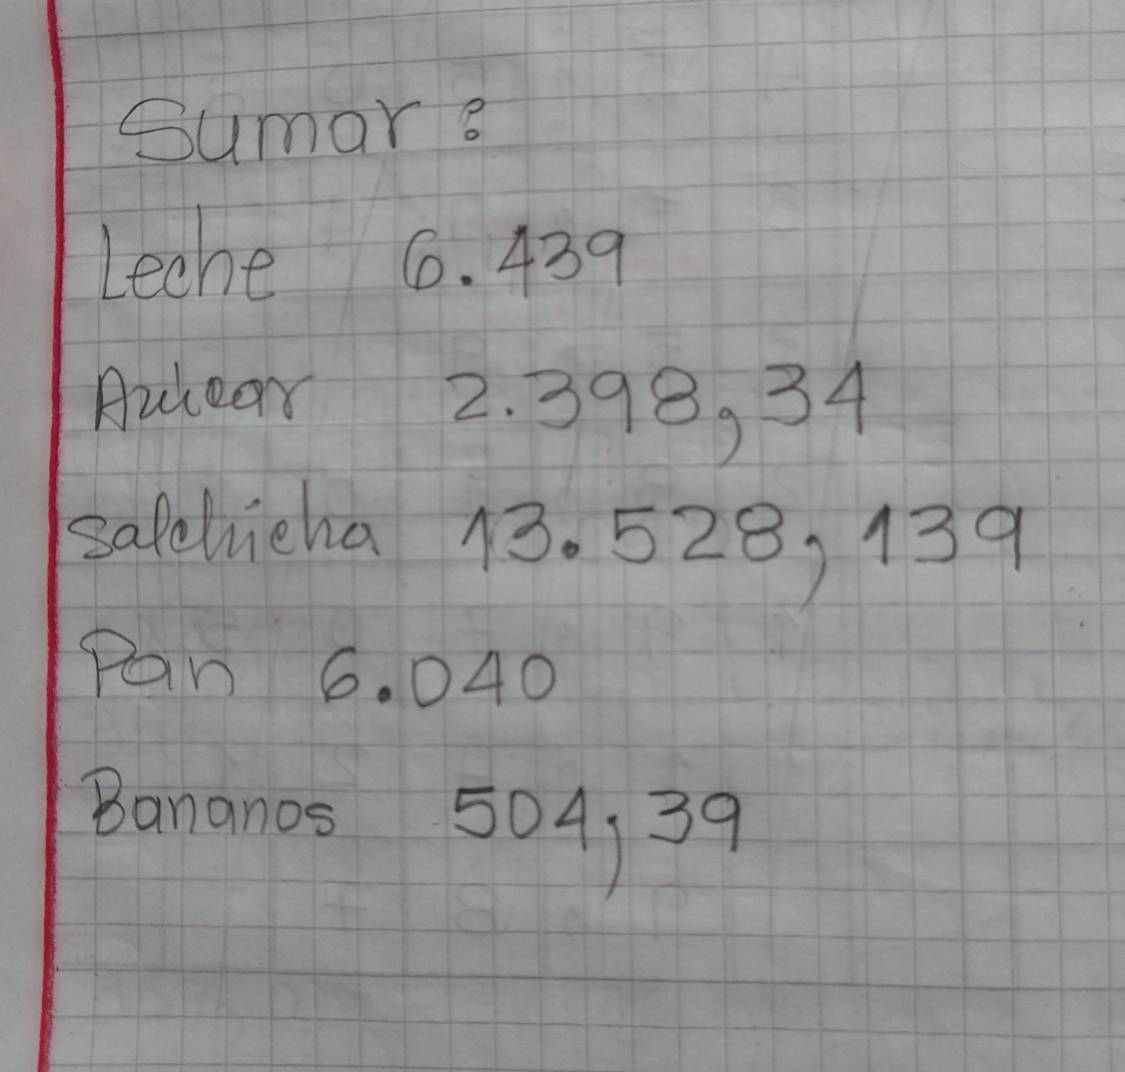 Sumar:
Leche 6.439
Azucar 2.398,34
Salchicha 13.528,139
Pan 6.040
Bananos 504,39